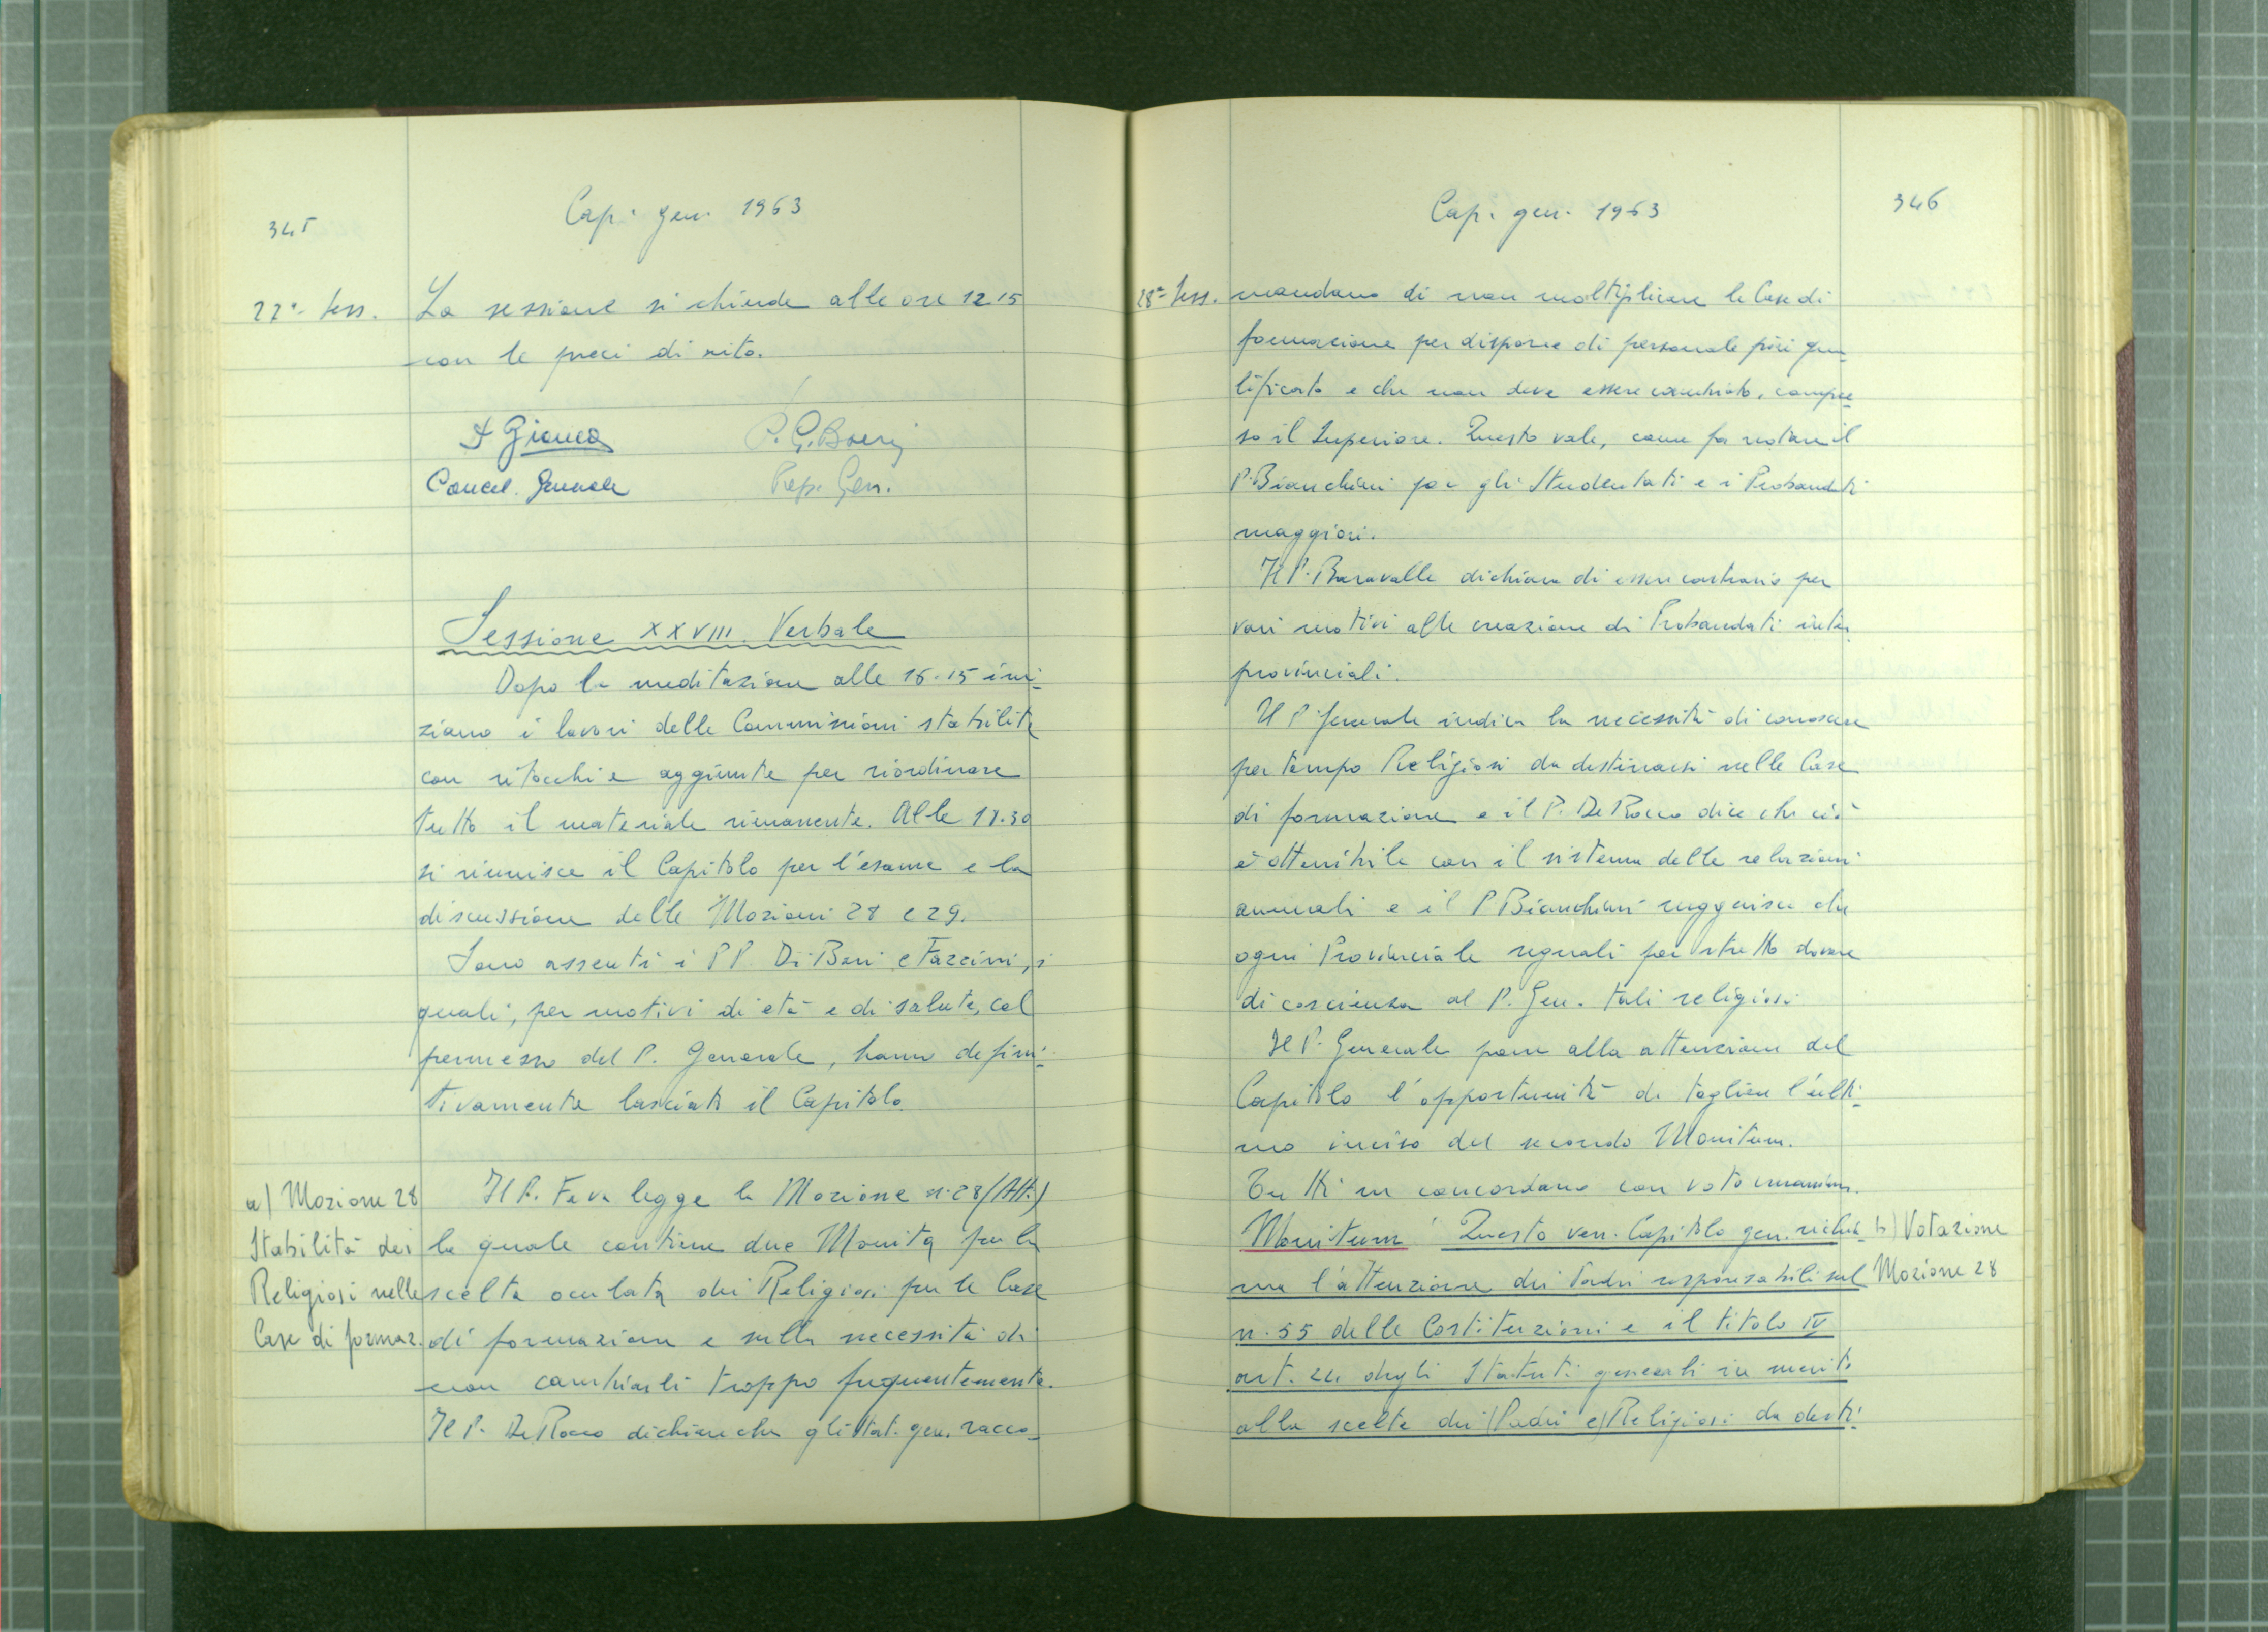 345
Cap. gen. 1963
27ª Sess.
La sessione si chiude alle ore 12.15
con le preci di rito.
P. G. Boeri
Cancel. Generale
Prep. Gen.
Sessione XXVIII Verbale
Dopo la meditazione alle 16.15 ini-
ziano i lavori delle Commissioni stabilite
con ritocchi e aggiunte per riordinare
tutto il materiale rimanente. Alle 18.30
si riunisce il Capitolo per l'esame e la
discussione delle Mozioni 28 e 29.
Sono assenti i PP. Di Bari e Fazzini, i
quali, per motivi di età e di salute, col
permesso del P. Generale, hanno defini-
tivamente lasciato il Capitolo.
a) Mozione 28
Stabilità dei
Religiosi nelle
Case di formaz.
Il P. Fava legge la Mozione n. 28 (All.)
la quale contiene due Monita per la
scelta oculata dei Religiosi per le Case
di formazione e sulla necessità di
non cambiarli troppo frequentemente.
Il P. De Rocco dichiara che gli Stat. gen. racco-
346
Cap. gen. 1963
28ª Sess.
mandano di non moltiplicare le Case di
formazione per disporre di personale più qua-
lificato e che non deve essere cambiato, compre-
so il Superiore. Questo vale, come fa notare il
P. Bianchini per gli Studentati e i Probandati
maggiori.
Il P. Baravalle dichiara di essere contrario per
vari motivi alla creazione di Probandati inter-
provinciali.
Il P. Generale indica la necessità di conoscere
per tempo Religiosi da destinarsi nelle Case
di formazione e il P. De Rocco dice che ciò
è ottenibile con il sistema delle relazioni
annuali e il P. Bianchini suggerisce che
ogni Provinciale segnali per stretto dovere
di coscienza al P. Gen. tali religiosi.
Il P. Generale pone alla attenzione del
Capitolo l'opportunità di togliere l'ulti-
mo inciso del secondo Monitum.
Tutti ne concordano con voto unanime.
b) Votazione
Mozione 28
Monitum Questo ven. Capitolo gen. richia-
ma l'attenzione dei Padri responsabili sul
n. 55 delle Costituzioni e il titolo IV
art. 24 degli Statuti generali in merito
alla scelta dei (Padri e) Religiosi da desti-